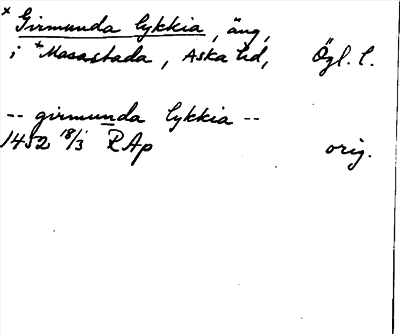 × Girmunda lykkia, äng,
i × Masastada, Aska hd, Ögl. l.
-- girmunda lykkia --
1452 18/1 RAp orig.